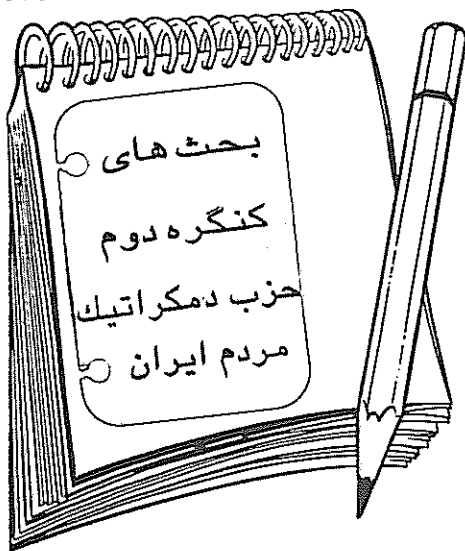 بحث‌های
کنگره دوم
حزب دمکراتیك
مردم ایران